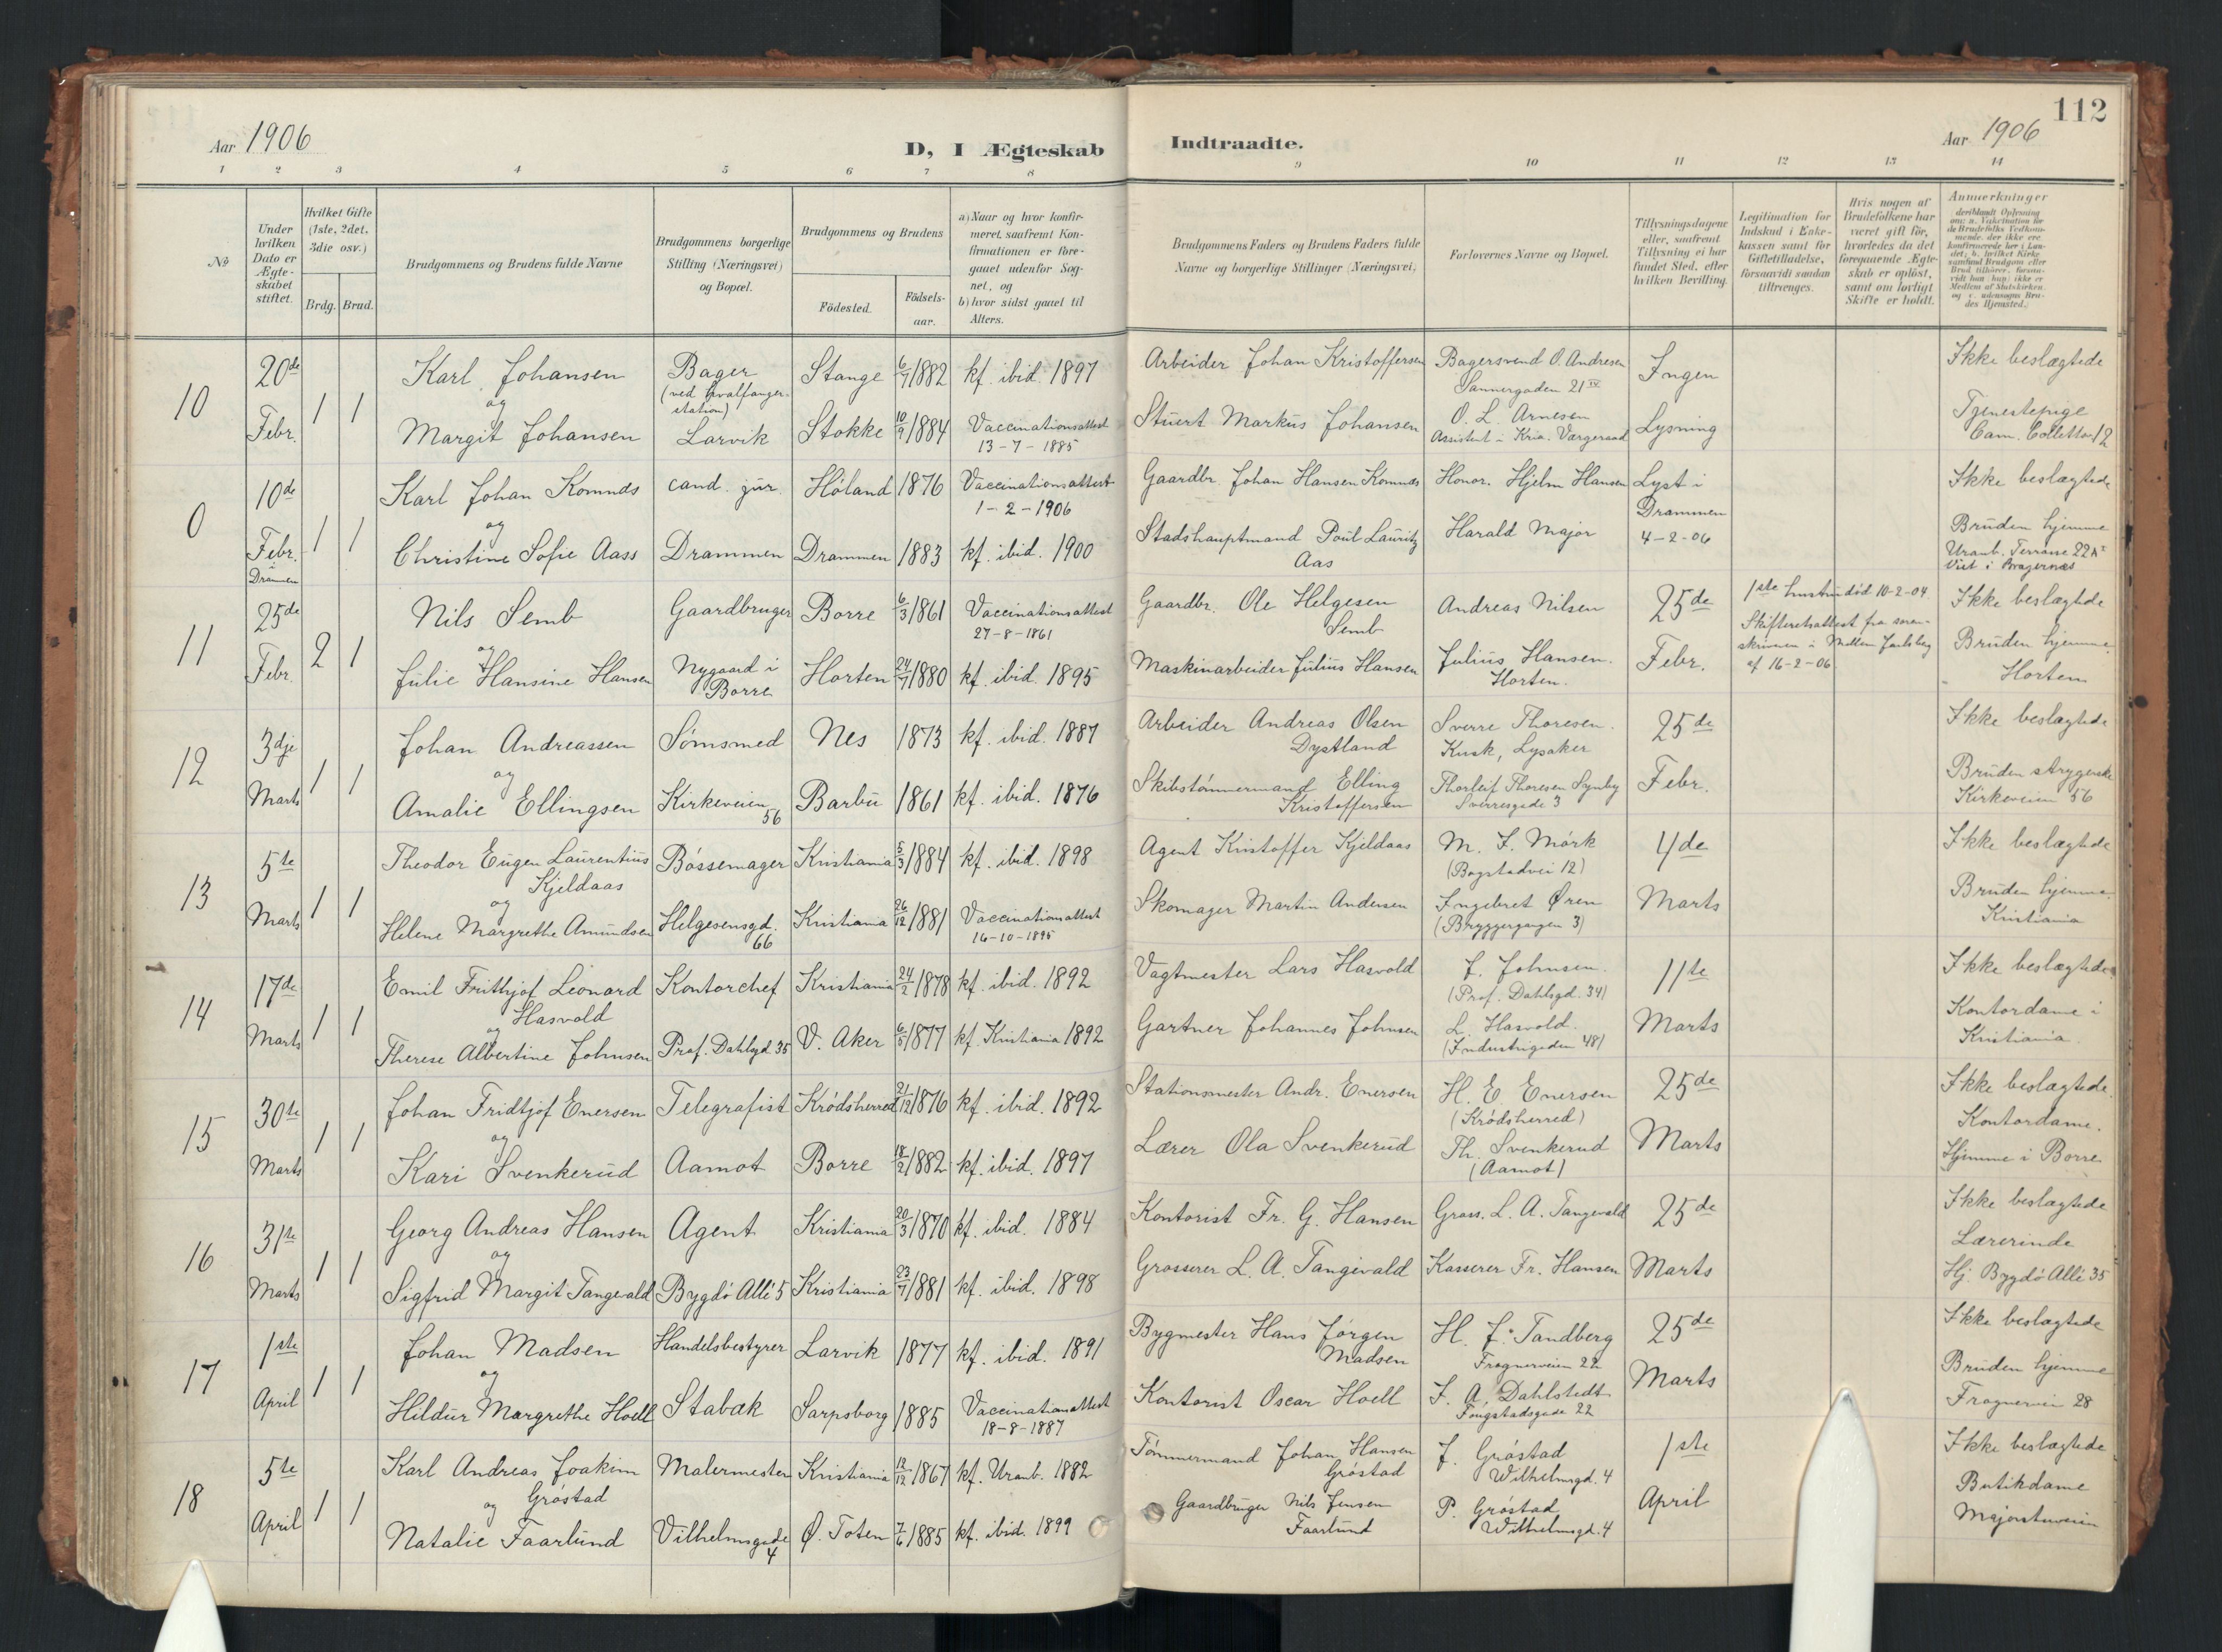 112
Aar 1906
D, I Ægteskab Indtraadte.
Aar 1906
1 2 3 4 5 6 7 8 9 10 11 12 13 14
No
Under hvilken Dato er Ægteskabet stiftet.
Hvilket Gifte (1ste, 2det, 3die osv.)
Brdg. Brud.
Brudgommens og Brudens fulde Navne
Brudgommens borgerlige Stilling (Næringsvei) og Bopæl.
Brudgommens og Brudens
Födested.
Födsels-aar.
a) Naar og hvor konfirmeret, saafremt Konfirmationen er foregaaet udenfor Sognet, og
b) hvor sidst gaaet til Alters.
Brudgommens Faders og Brudens Faders fulde Navne og borgerlige Stillinger (Næringsvei)
Forlovernes Navne og Bopæl.
Tillysningsdagene eller, saafremt Tillysning ei har fundet Sted, efter hvilken Bevilling.
Legitimation for Indskud i Enkekassen samt for Giftetilladelse, forsaavidt saadan tiltrænges.
Hvis nogen af Brudefolkene har været gift før, hvorledes da det foregaaende Ægteskab er opløst, samt om lovligt Skifte er holdt.
Anmærkninger
10
20de Febr.
1 1
Karl Johansen
og
Margit Johansen
Bager
(ved hvalfanger-
station)
Larvik
Stange 6/7 1882 kf. ibid. 1897
Stokke 10/9 1884 Vaccinationsattest
13-7-1885
Arbeider Johan Kristoffersen
Stuert Markus Johansen
Bagersvend O. Andresen
Sannergaden 21 IV
O. L. Arnesen
Assistent i Kria. Værgeraad
Ingen
Lysning
Ikke beslægtede
Tjenestepige
Cam. Collettsv 12
0
10de Febr.
Drammen
1 1
Karl Johan Komnæs
og
Christine Sofie Aass
cand. jur.
Drammen
Høland 1876 Vaccinationsattest
1-2-1906
Drammen 1883 kf. ibid. 1900
Gaardbr. Johan Hansen Komnæs
Stadshauptmand Poul Lauritz
Aas
Honor. Hjelm Hansen
Harald Major
Lyst i
Drammen
4-2-06
Ikke beslægtede
Bruden hjemme
Uranb. Terrasse 22A I
Viet i Bragernæs
11
25de Febr.
2 1
Nils Semb
og
Julie Hansine Hansen
Gaardbruger
Nygaard i
Borre
Borre 6/3 1861 Vaccinationsattest
27-8-1861
Horten 24/7 1880 kf. ibid. 1895
Gaardbr. Ole Helgesen
Semb
Maskinarbeider Julius Hansen
Andreas Nilsen
Julius Hansen.
Horten.
25de
Febr.
1ste hustru død 10-2-04.
Skifteretsattest fra soren-
skriveren i Mellem Jarlsberg
af 16-2-06
Ikke beslægtede
Bruden hjemme.
Horten
12
3dje Marts
1 1
Johan Andreassen
og
Amalie Ellingsen
Sømsmed
Kirkeveien
56
Nes 1873 kf. ibid. 1887
Barbu 1861 kf. ibid. 1876
Arbeider Andreas Olsen
Dystland
Skibstømmermand Elling
Kristoffersen
Sverre Thoresen.
Kusk, Lysaker
Thorleif Thoresen Synby
Sverresgade 3
25de
Febr.
Ikke beslægtede
Bruden strygerske
Kirkeveien 56
13
5te Marts
1 1
Theodor Eugen Laurentius
Kjeldaas
og
Helene Margrethe Amundsen
Bøssemager
Helgesensgd.
66
Kristiania 5/3 1884 kf. ibid. 1898
Kristiania 26/12 1881 Vaccinationsattest
16-10-1895
Agent Kristoffer Kjeldaas
Skomager Martin Andersen
M. F. Mørk
(Bogstadvei 12)
Ingebret Øren
(Bryggergangen 3)
4de
Marts
Ikke beslægtede
Bruden hjemme.
Kristiania
14
17de Marts
1 1
Emil Frithjof Leonard
Hasvold
og
Therese Albertine Johnsen
Kontorchef
Prof. Dahlsgd 35
Kristiania 24/2 1878 kf. ibid. 1892
V. Aker 6/5 1877 kf. Kristiania 1892
Vagtmester Lars Hasvold
Gartner Johannes Johnsen
J. Johnsen.
(Prof. Dahlsgd. 34)
L. Hasvold.
(Industrigaden 48)
11te
Marts
Ikke beslægtede
Kontordame i
Kristiania.
15
30te Marts
1 1
Johan Fridtjof Enersen
og
Kari Svenkerud
Telegrafist
Aamot
Krødsherred 21/12 1876 kf. ibid. 1892
Borre 18/2 1882 kf. ibid. 1897
Stationsmester Andr. Enersen
Lærer Ola Svenkerud
H. E. Enersen
(Krødsherred)
Th. Svenkerud
(Aamot)
25de
Marts
Ikke beslægtede.
Kontordame.
Hjemme i Borre
16
31te Marts
1 1
Georg Andreas Hansen
og
Sigfrid Margit Tangevald
Agent
Bygdø Allé 5
Kristiania 20/3 1870 kf. ibid. 1884
Kristiania 23/7 1881 kf. ibid. 1898
Kontorist Fr. G. Hansen
Grosserer L. A. Tangevald
Gross. L. A. Tangevald
Kasserer Fr. Hansen
25de
Marts
Ikke beslægtede
Lærerinde
Hj. Bygdø Allé 35
17
1ste April
1 1
Johan Madsen
og
Hildur Margrethe Hoell
Handelsbestyrer
Stabæk
Larvik 1877 kf. ibid. 1891
Sarpsborg 1885 Vaccinationsattest
18-8-1887
Bygmester Hans Jørgen
Madsen
Kontorist Oscar Hoell
H. J. Tandberg
Frognerveien 22
F. A. Dahlstedt
Fougstadsgade 22
25de
Marts
Ikke beslægtede
Bruden hjemme
Frognervei 28
18
5te April
1 1
Karl Andreas Joakim
Grøstad
og
Natalie Faarlund
Malermester
Vilhelmsgade
4
Kristiania 12/12 1867 kf. Uranb. 1882
Ø. Toten 7/6 1885 kf. ibid. 1899
Tømmermand Johan Hansen
Grøstad
Gaardbruger Nils Jensen
Faarlund
J. Grøstad
Wilhelmsgd. 4
P. Grøstad
Wilhelmsgd. 4
1ste
April
Ikke beslægtede
Butikdame
Majorstuveien